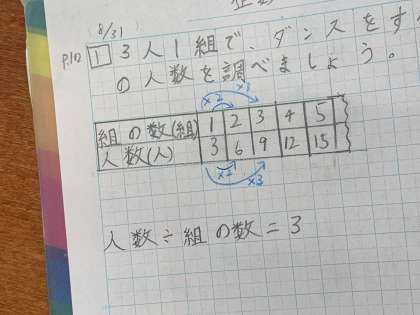 (8/31)
p.112 1 3人1組で、ダンスをす
の人数を調べましょう。
×2 ×3
組の数(組) 1 2 3 4 5
人数(人) 3 6 9 12 15
×2 ×3
人数÷組の数=3